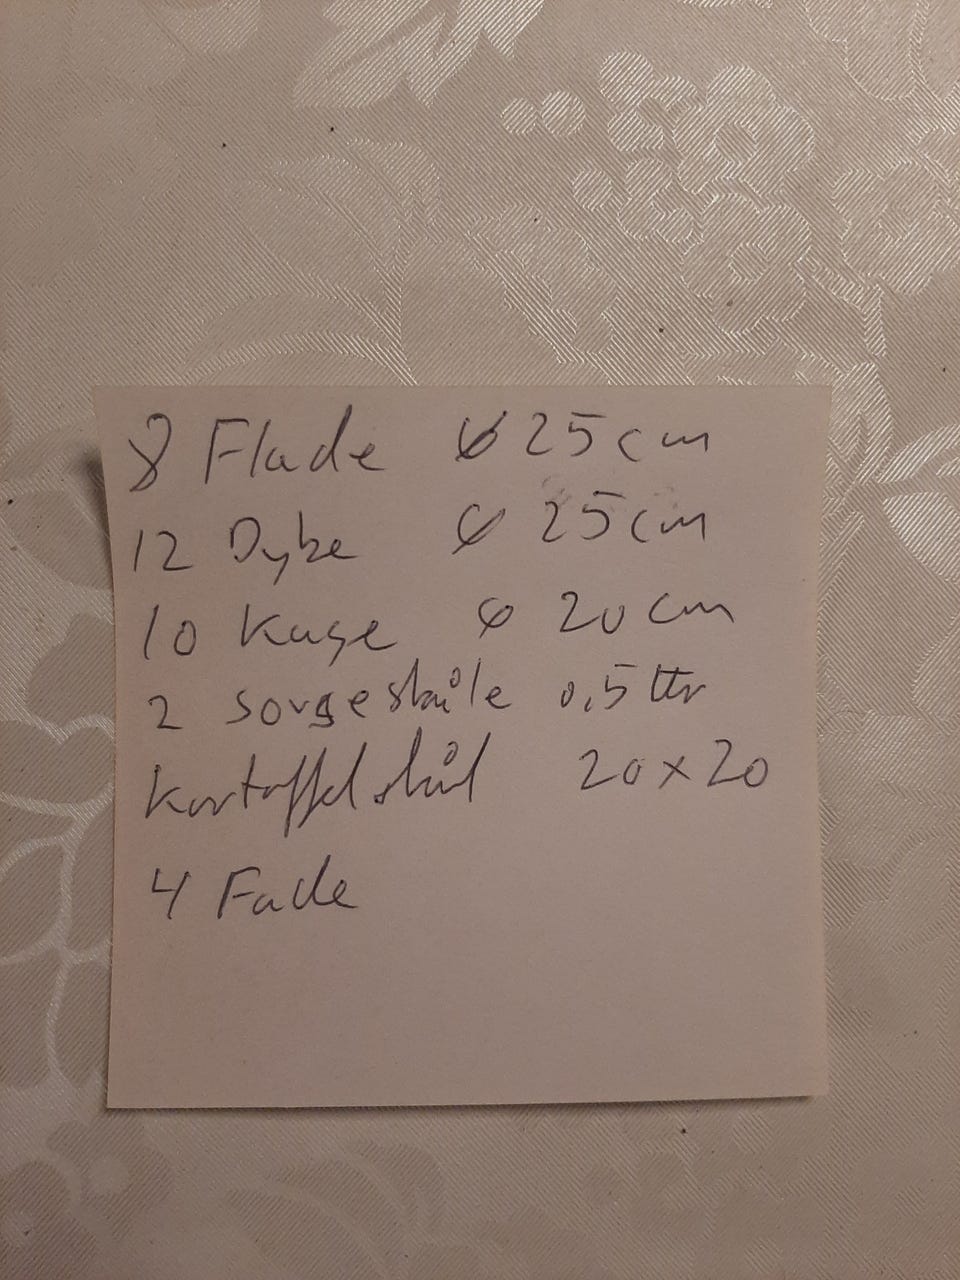 8 Flade Ø 25 cm
12 Dybe Ø 25 cm
10 Kage Ø 20 cm
2 sovseskåle 0,5 ltr
Kartoffelskål 20 x 20
4 Fade